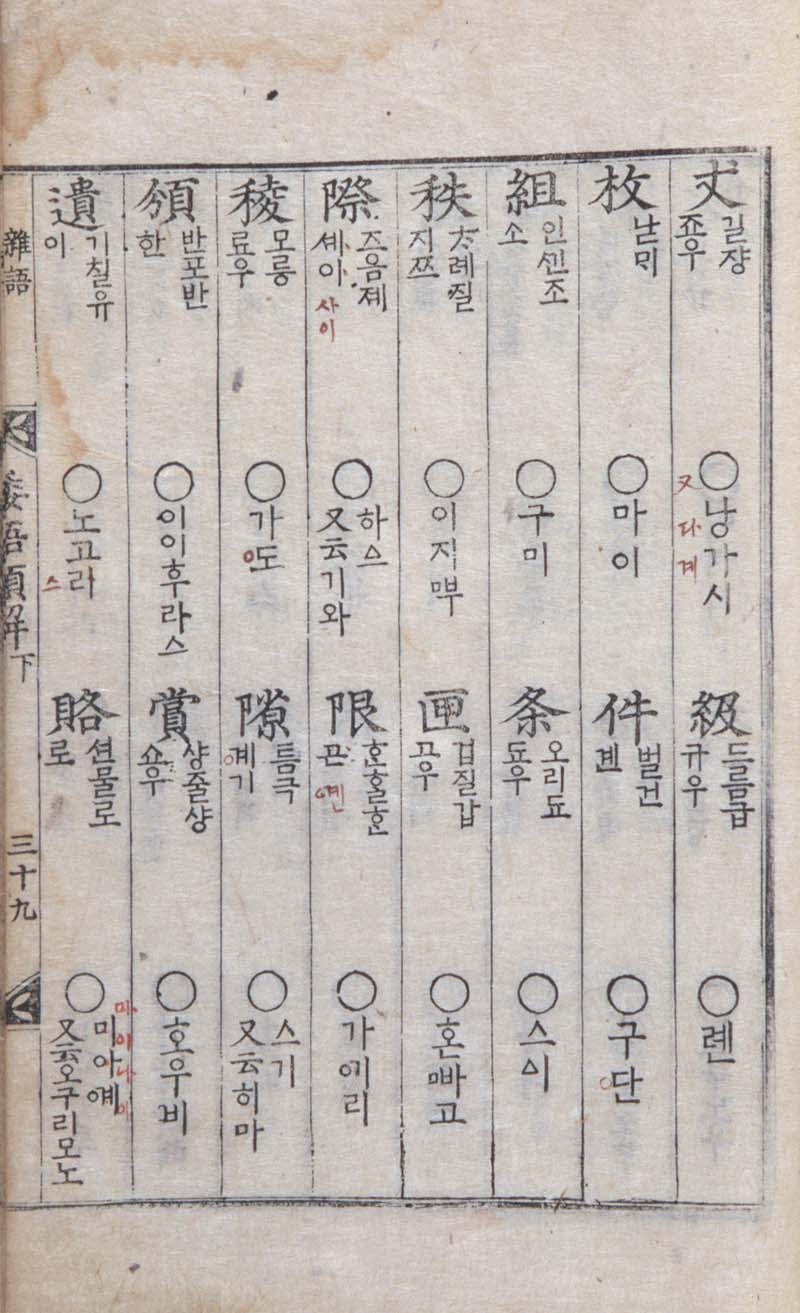 丈 길쟝 죠우
○낭가시
又 다계
級 드를급 규우
○롄
枚 낟ᄆᆡ
○마이
件 벌건 곈
○구단
組 인ᄭᅵᆫ조 소
○구미
条 오리됴 됴우
○스ᅀᅵ
秩 ᄎᆞ례질 지쯔
○이지ᄲᅮ
匣 겁질갑 ᄭᅩ우
○혼ᄲᅡ고
際 즈음졔 셰이
사이
○하스
又云기와
限 ᄒᆞᆫᄒᆞᆯᄒᆞᆫ
○가ᅌᅵ리
稜 모릉 료우
○가도
隙 틈극 계기
○스기
又云히마
頒 반포반 한
○이이후라스
賞 샹줄샹 쇼우
○호우비
遺 기칠유 이
○노고라
스
賂 션물로 로
○미아예
마이나이
又云오구리모노
雜語
倭語類解下
三十九